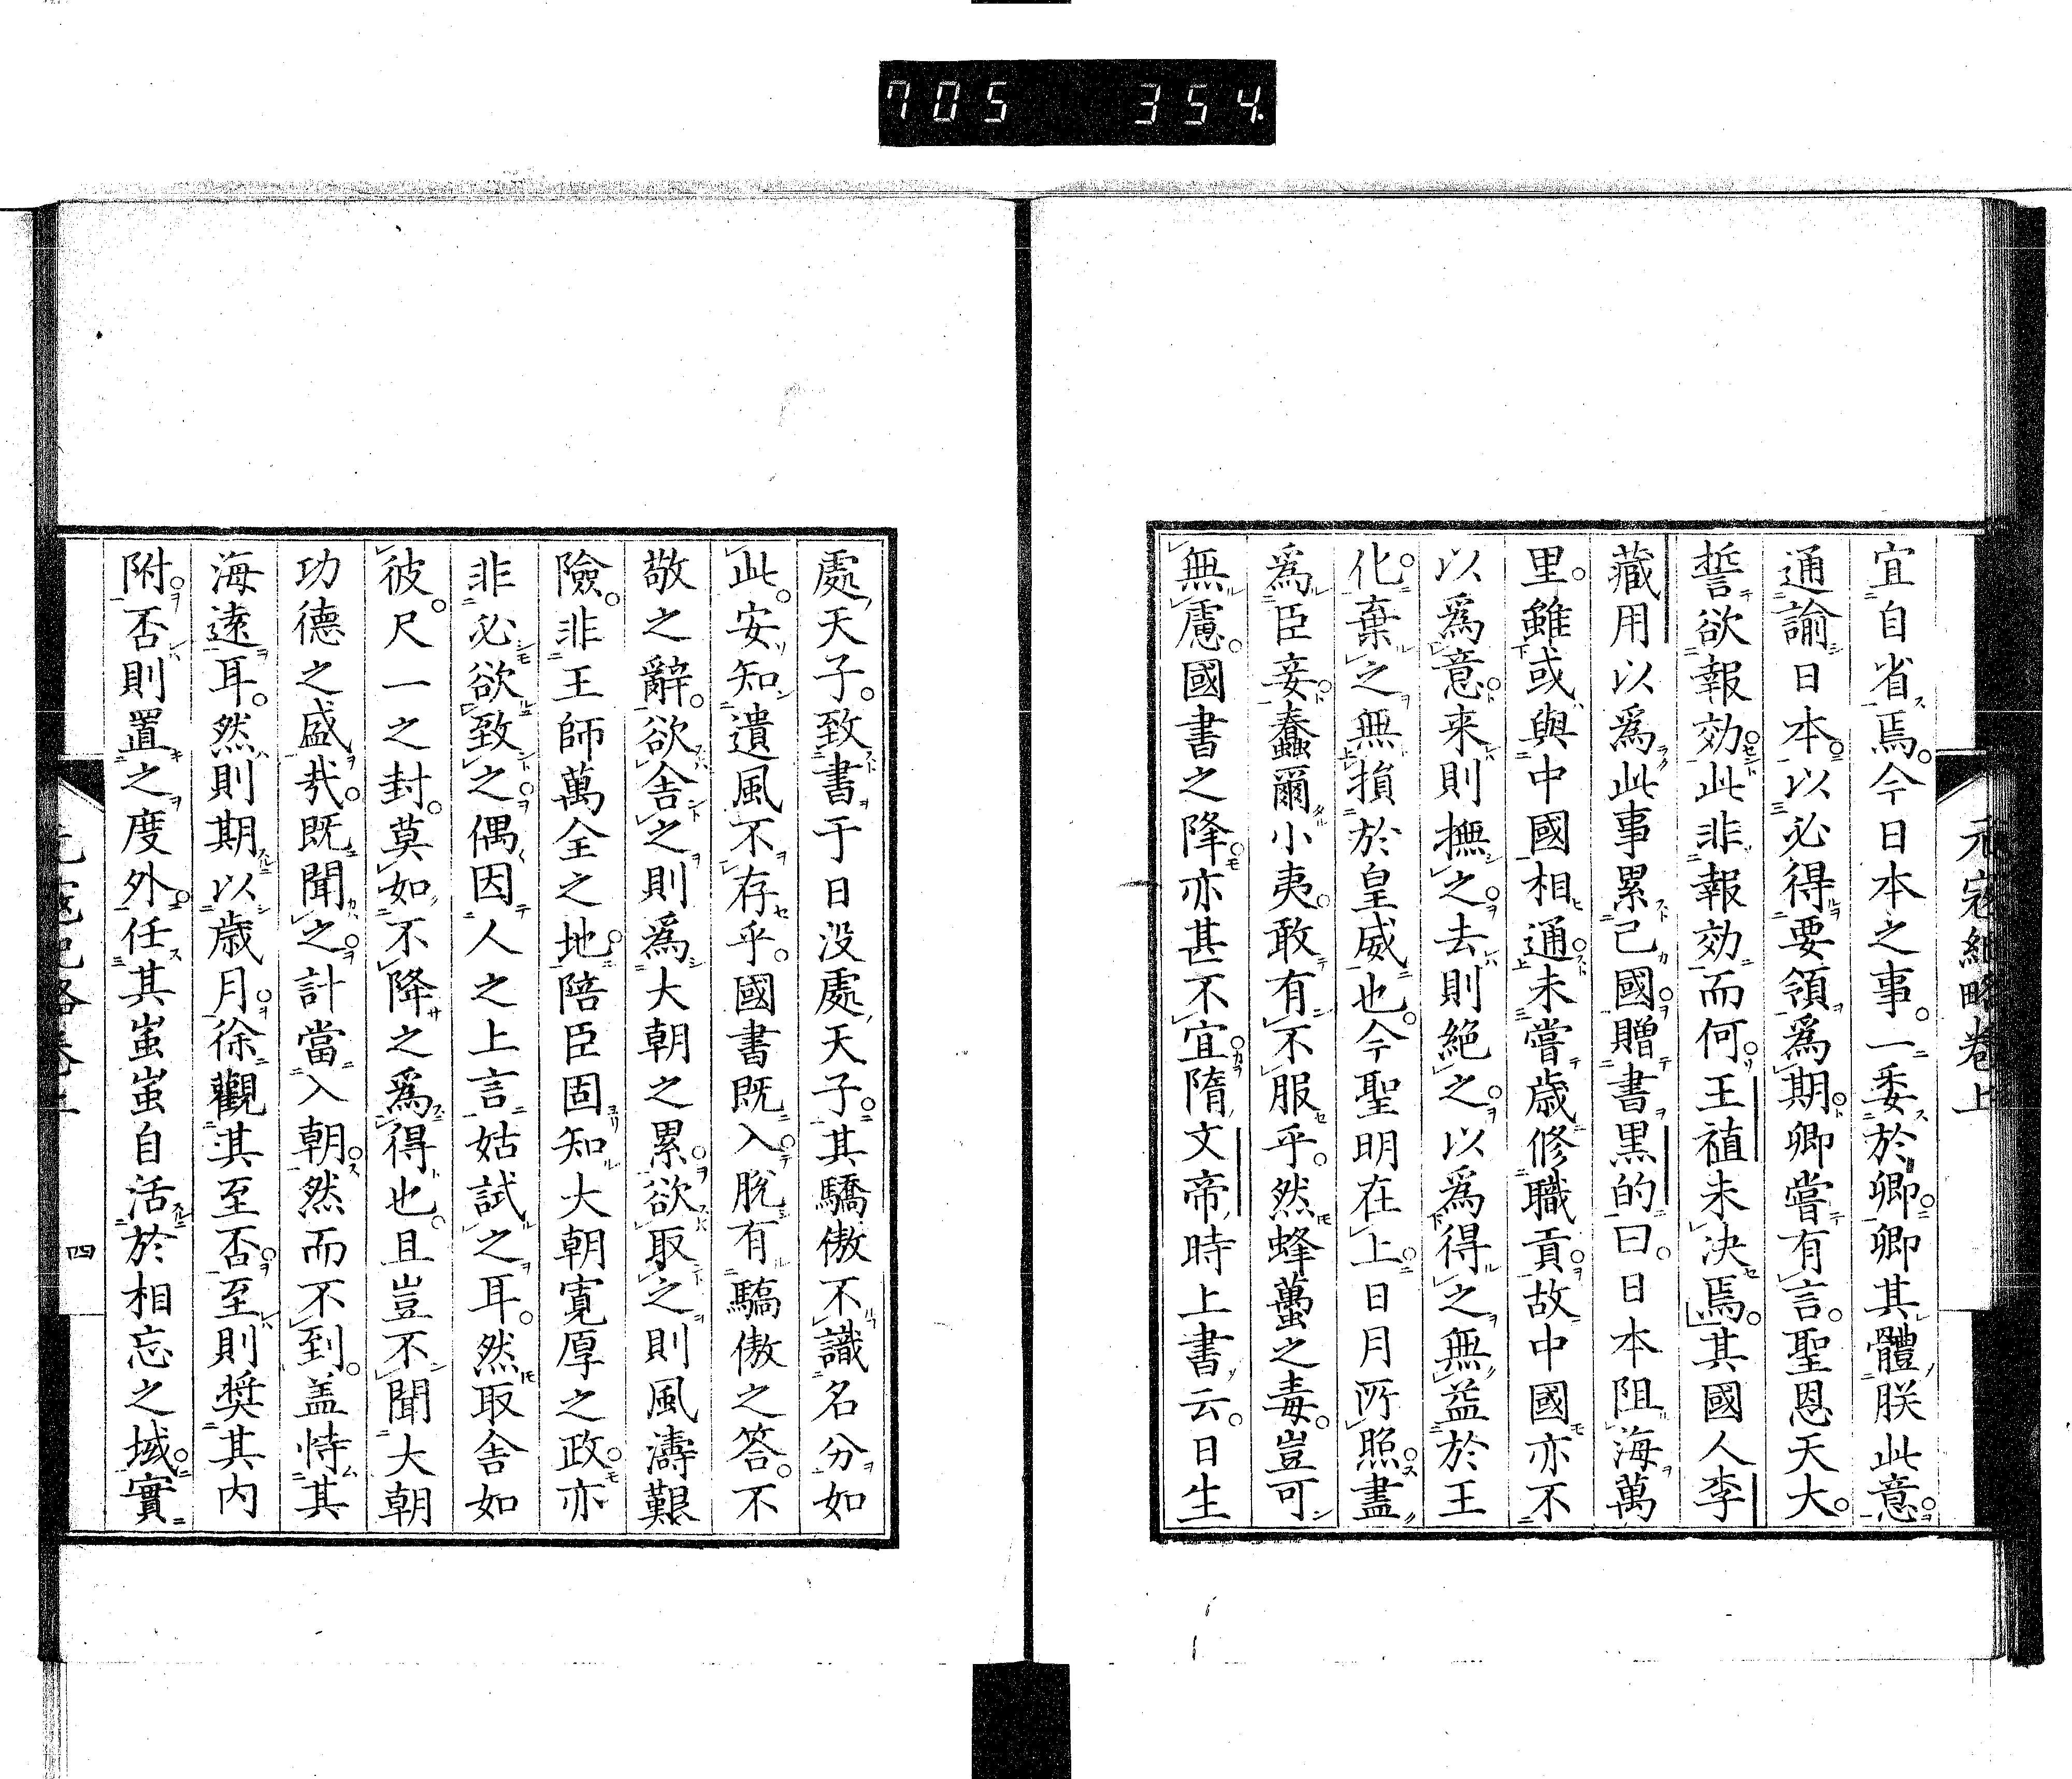 705 354.
元寇紀略卷上
宜自省焉。今日本之事。一委於卿。卿其體朕此意。
通諭日本。以必得要領爲期。卿嘗有言。聖恩天大。
誓欲報効。此非報効而何。王植未決焉。其國人李
藏用以爲此事累己國。贈書黒的曰。日本阻海萬
里。雖或與中國相通。未嘗歳修職貢。故中國亦不
以爲意。来則撫之。去則絶之。以爲得之無益於王
化。棄之無損於皇威也。今聖明在上。日月所照。盡
爲臣妾。蠢爾小夷。敢有不服乎。然蜂蠆之毒。豈可
無慮。國書之降。亦甚不宜。隋文帝時上書云。日生
處天子。致書于日没處天子。其驕傲不識名分如
此。安知遺風不存乎。國書既入。脱有驕傲之答。不
敬之辭。欲舎之則爲大朝之累。欲取之則風濤艱
險。非王師萬全之地。陪臣固知大朝寛厚之政。亦
非必欲致之。偶因人之上言。姑試之耳。然取舎如
彼。尺一之封。莫如不降之爲得也。且豈不聞大朝
功德之盛哉。既聞之。計當入朝。然而不到。盖恃其
海遠耳。然則期以歳月。徐觀其至否。至則奬其内
附。否則置之度外。任其蚩蚩自活於相忘之域。實
四